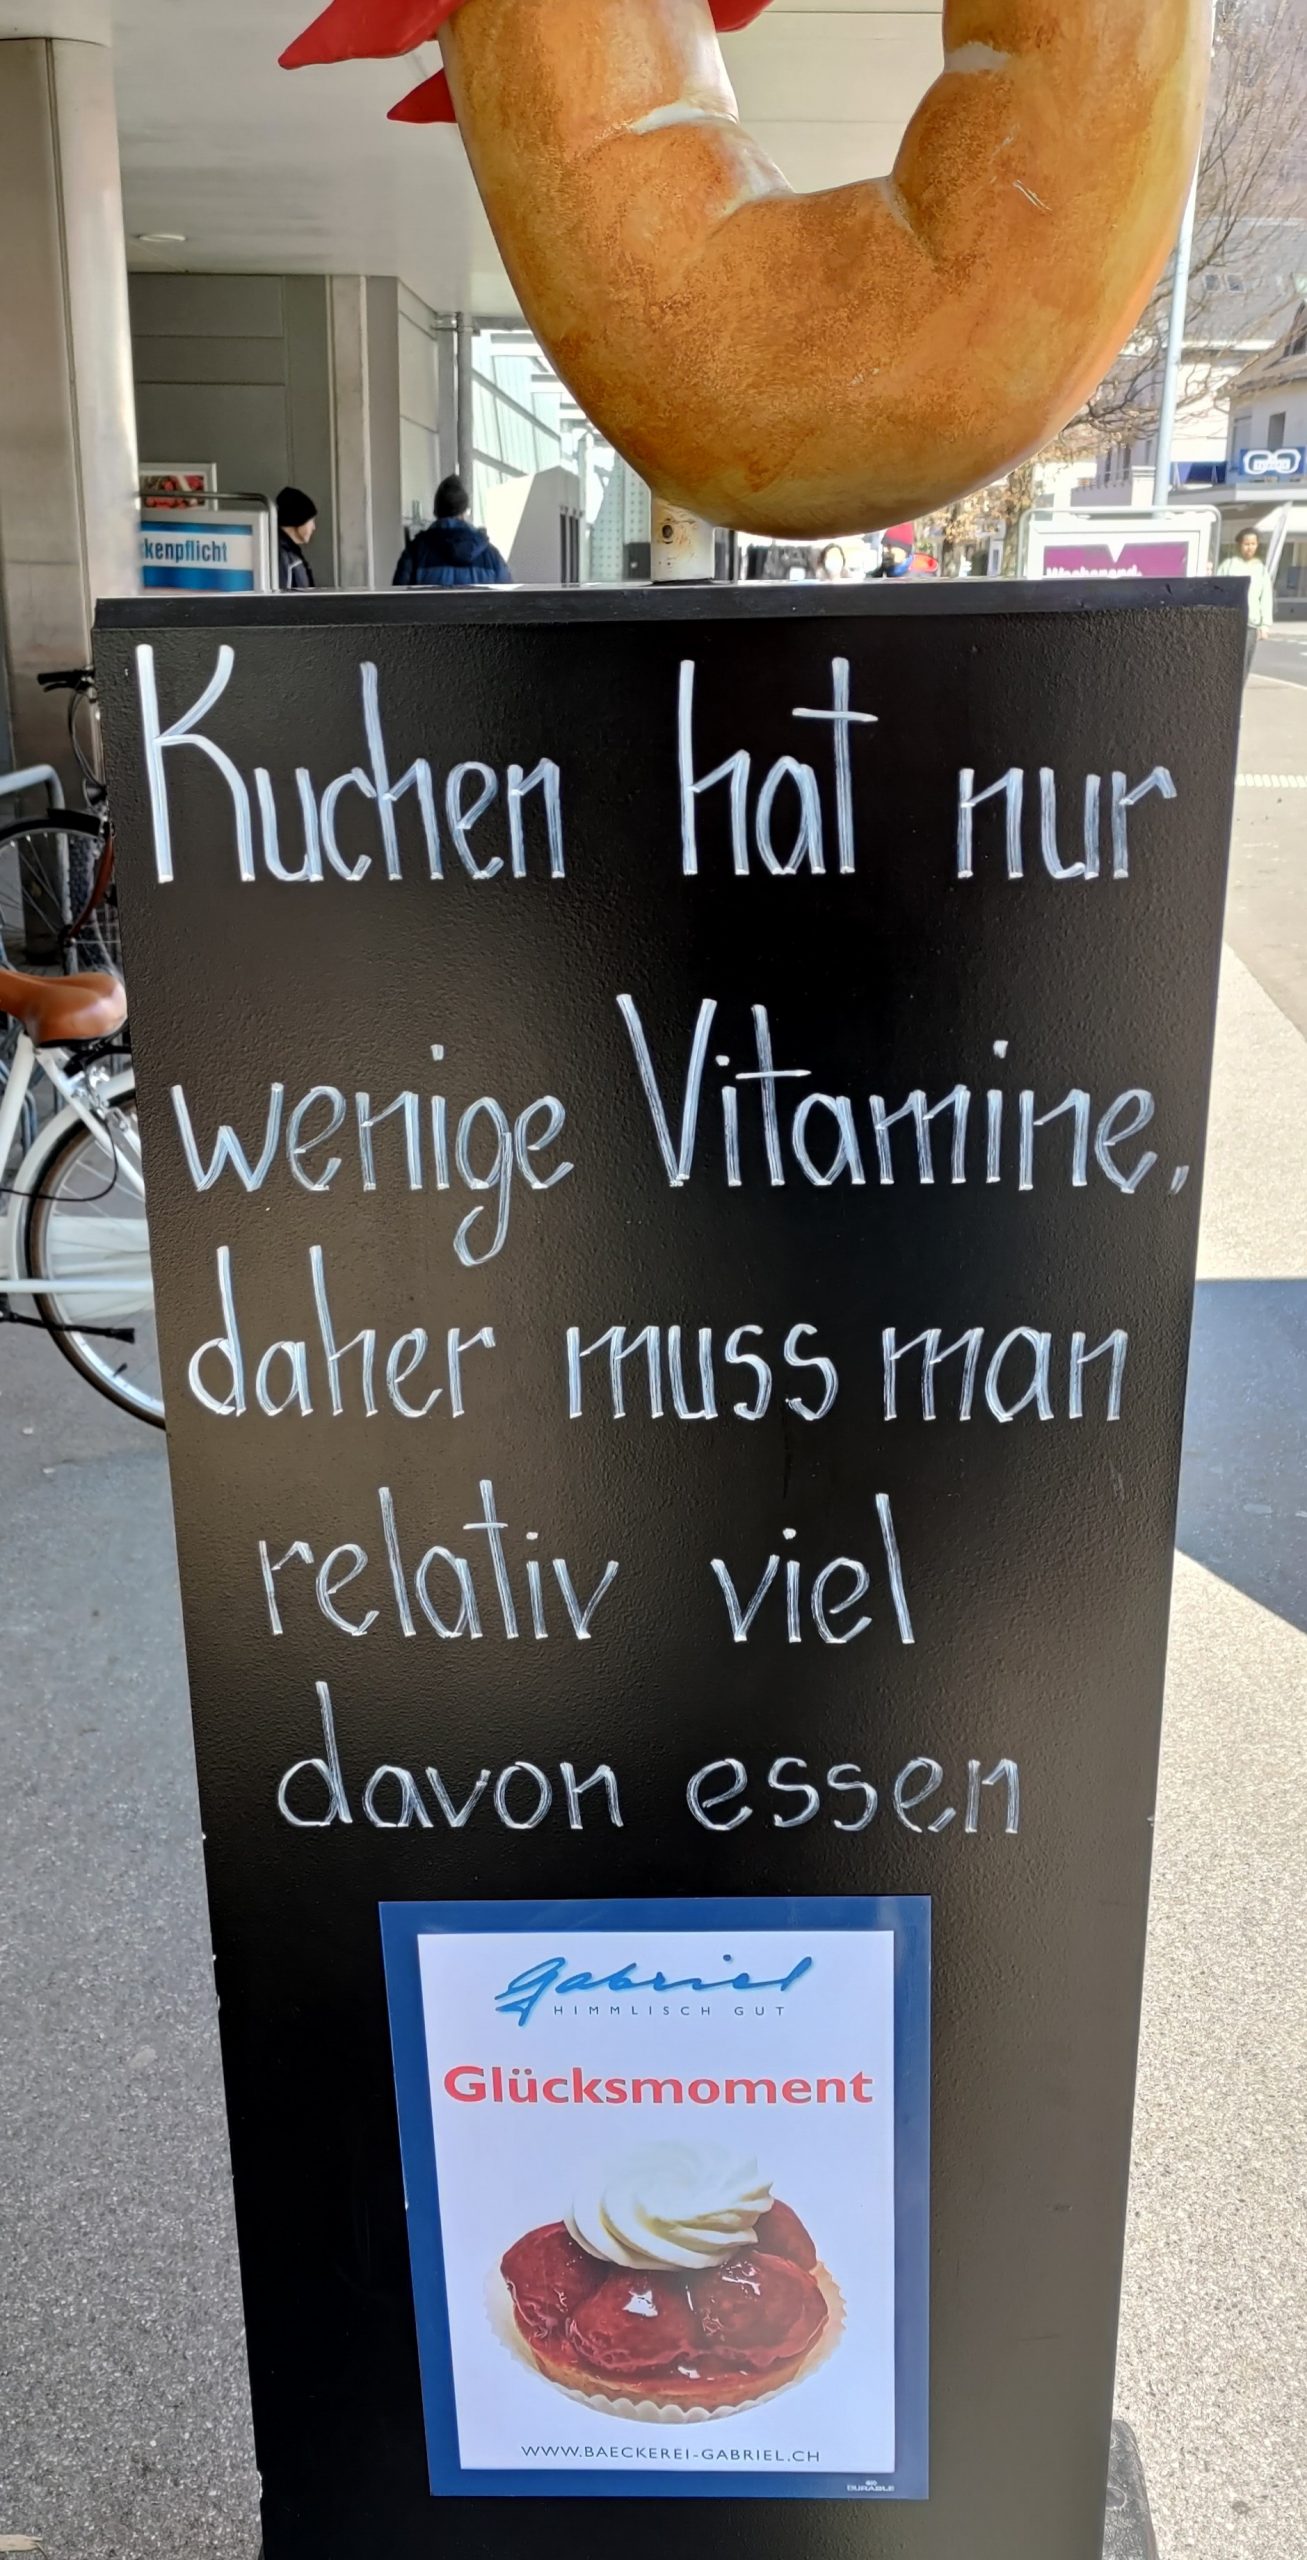 kenpflicht
Kuchen hat nur
wenige Vitamine,
daher muss man
relativ viel
davon essen
Gabriel
HIMMLISCH GUT
Glücksmoment
WWW.BAECKEREI-GABRIEL.CH
DURABLE